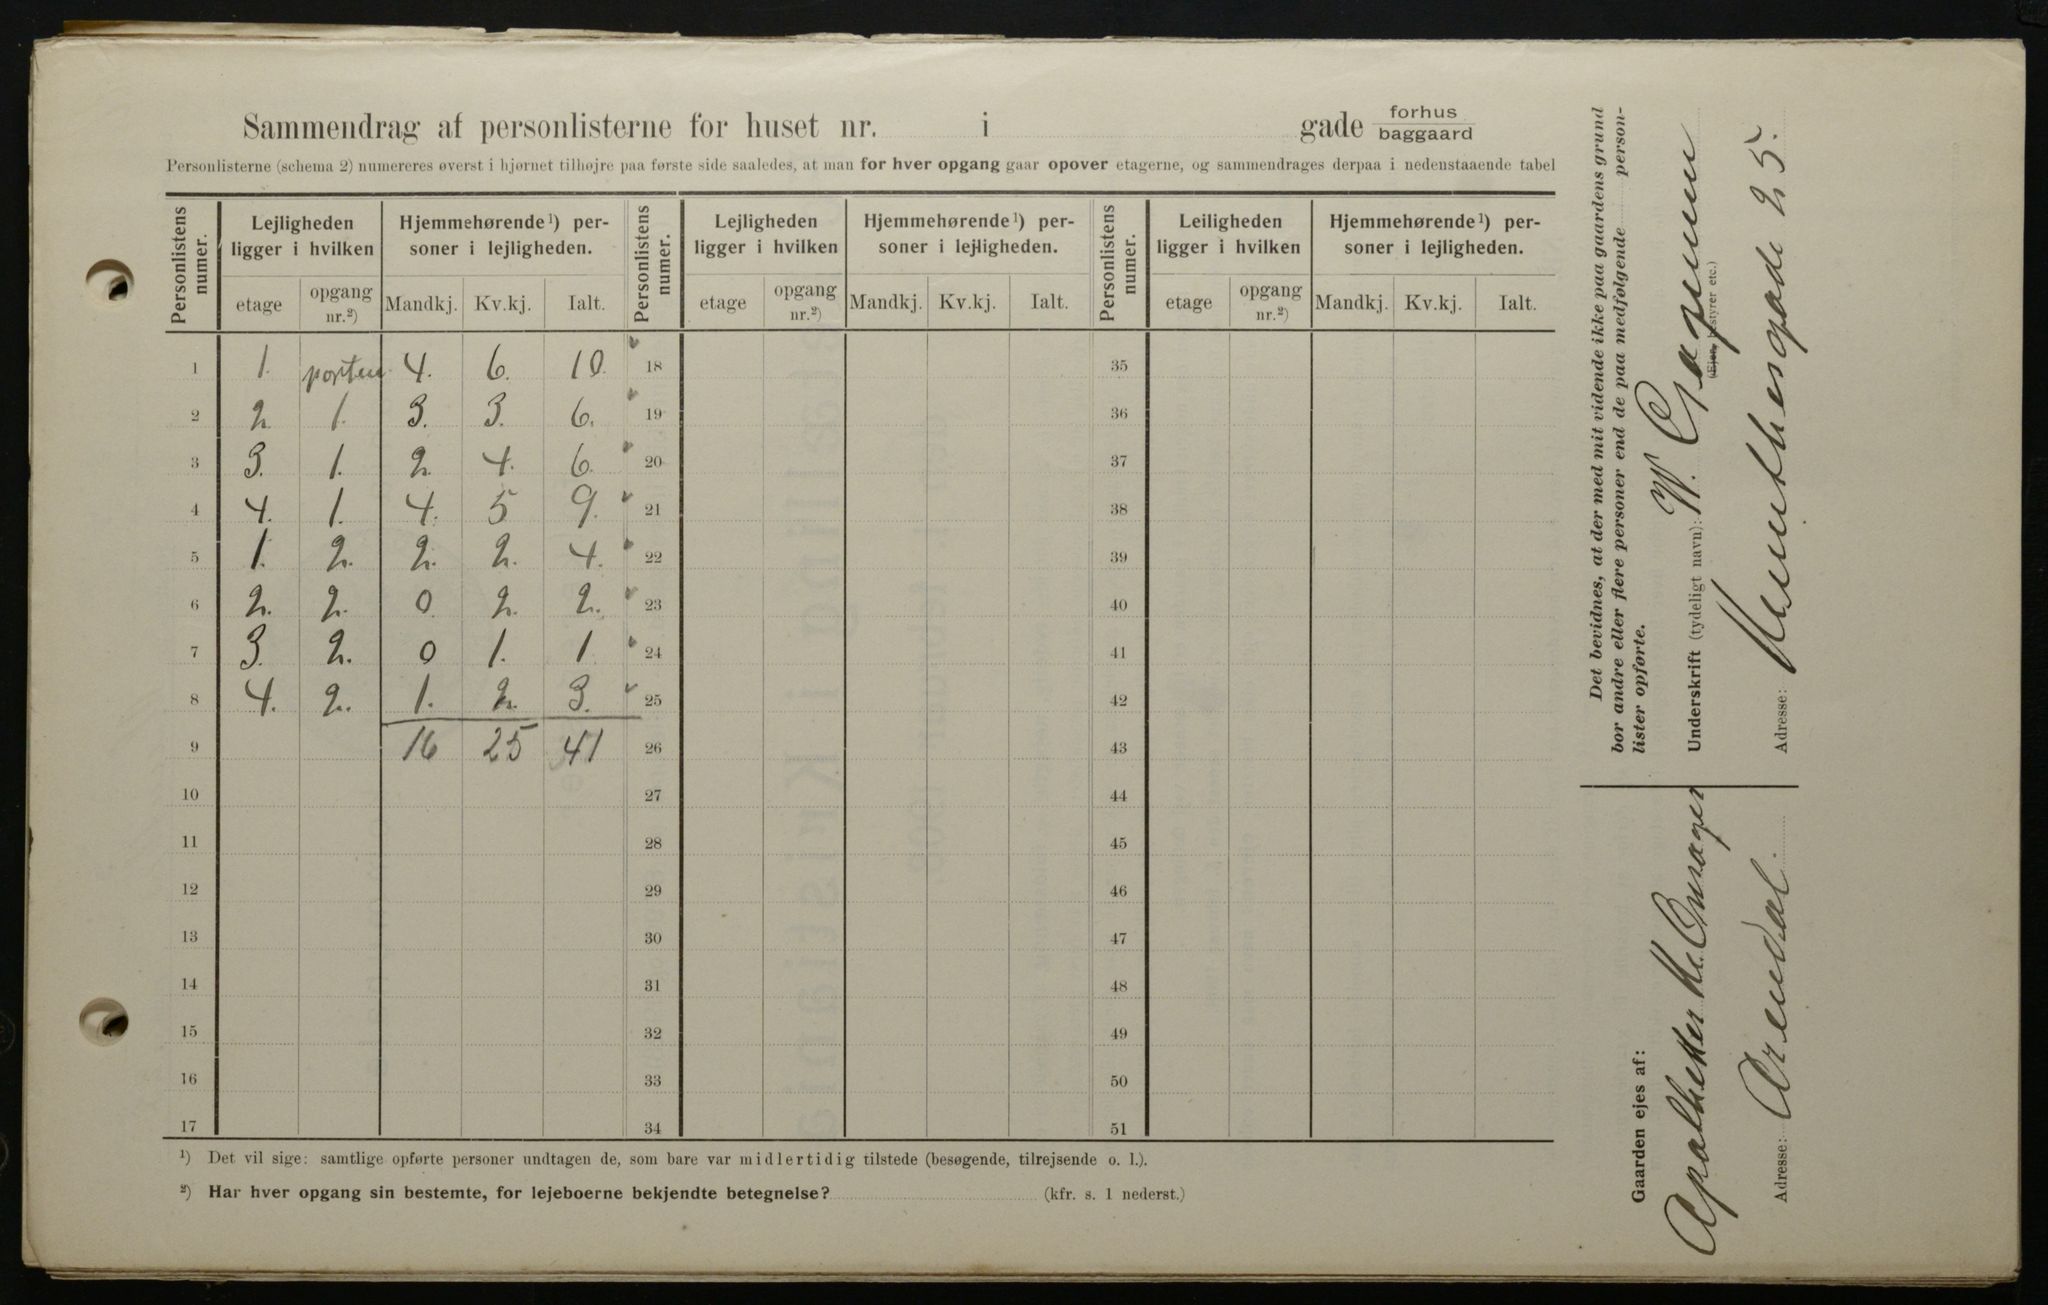 Sammendrag af personlisterne for huset nr. i gade forhus baggaard
Personlisterne (schema 2) numereres øverst i hjørnet tilhøjre paa første side saaledes, at man for hver opgang gaar opover etagerne, og sammendrages derpaa i nedenstaaende tabel
Personlistens numer. Lejligheden ligger i hvilken Hjemmehørende ¹) personer i lejligheden. Personlistens numer. Lejligheden ligger i hvilken Hjemmehørende ¹) personer i lejligheden. Personlistens numer. Leiligheden ligger i hvilken Hjemmehørende ¹) personer i lejligheden.
etage opgang nr.²) Mandkj. Kv.kj. Ialt. etage opgang nr.²) Mandkj. Kv.kj. Ialt. etage opgang nr.²) Mandkj. Kv.kj. Ialt.
1 1. porten 4. 6. 10. 18 35
2 2 1. 3. 3. 6. 19 36
3 3. 1. 2. 4. 6. 20 37
4 4. 1. 4. 5 9. 21 38
5 1. 2. 2. 2. 4. 22 39
6 2. 2. 0. 2. 2. 23 40
7 3. 2. 0 1. 1 24 41
8 4. 2. 1. 2. 3. 25 42
9 16 25 41 26 43
10 27 44
11 28 45
12 29 46
13 30 47
14 31 48
15 32 49
16 33 50
17 34 51
¹) Det vil sige: samtlige opførte personer undtagen de, som bare var midlertidig tilstede (besøgende, tilrejsende o. l.).
²) Har hver opgang sin bestemte, for lejeboerne bekjendte betegnelse? (kfr. s. 1 nederst.)
Det bevidnes, at der med mit vidende ikke paa gaardens grund
bor andre eller flere personer end de paa medfølgende person-
lister opførte.
Underskrift (tydeligt navn): W.
(Ejer, bestyrer etc.)
Adresse: Munthesgade 25.
Gaarden ejes af:
Apotheker
Adresse: Arendal.